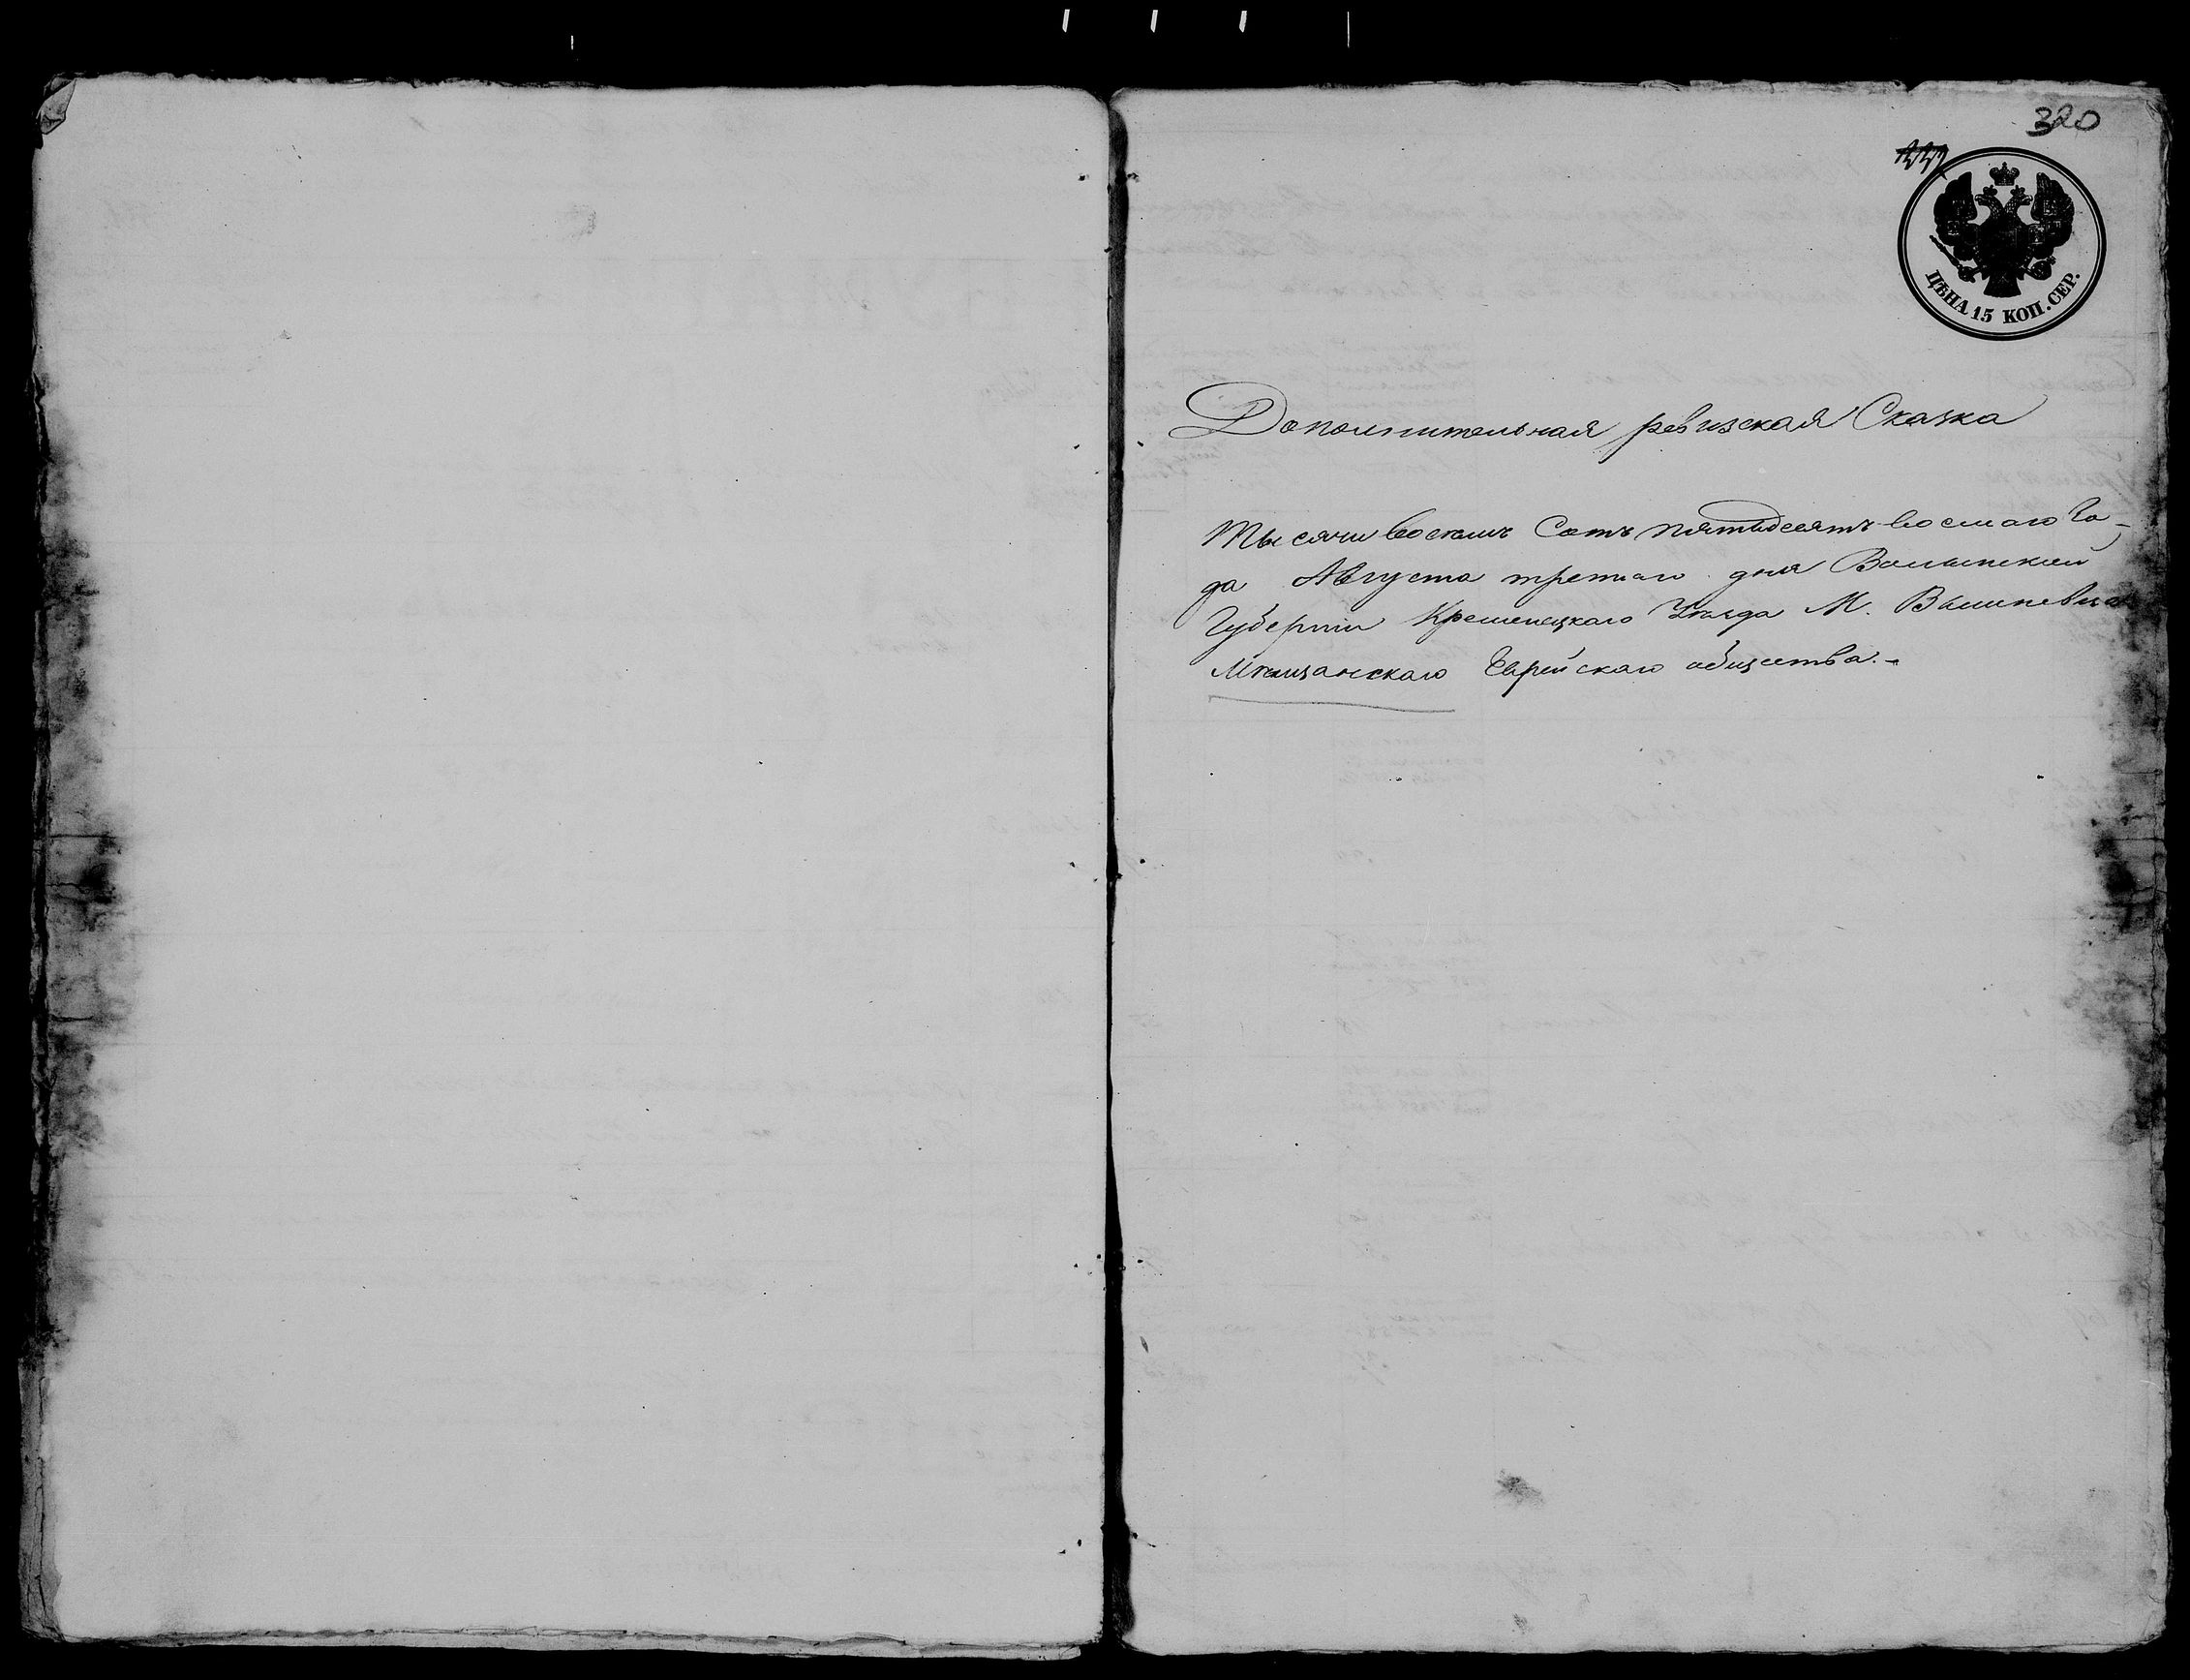 320
ЦѢНА 15 КОП. СЕР.
Дополнительная ревизская Сказка
Тысячи восемь Сотъ пятьдесятъ восмаго Го-
да Августа третьяго дня Волынской
Губерніи Кременецкаго Уѣзда М. Вышневца
Мѣщанскаго Еврейскаго общества.-